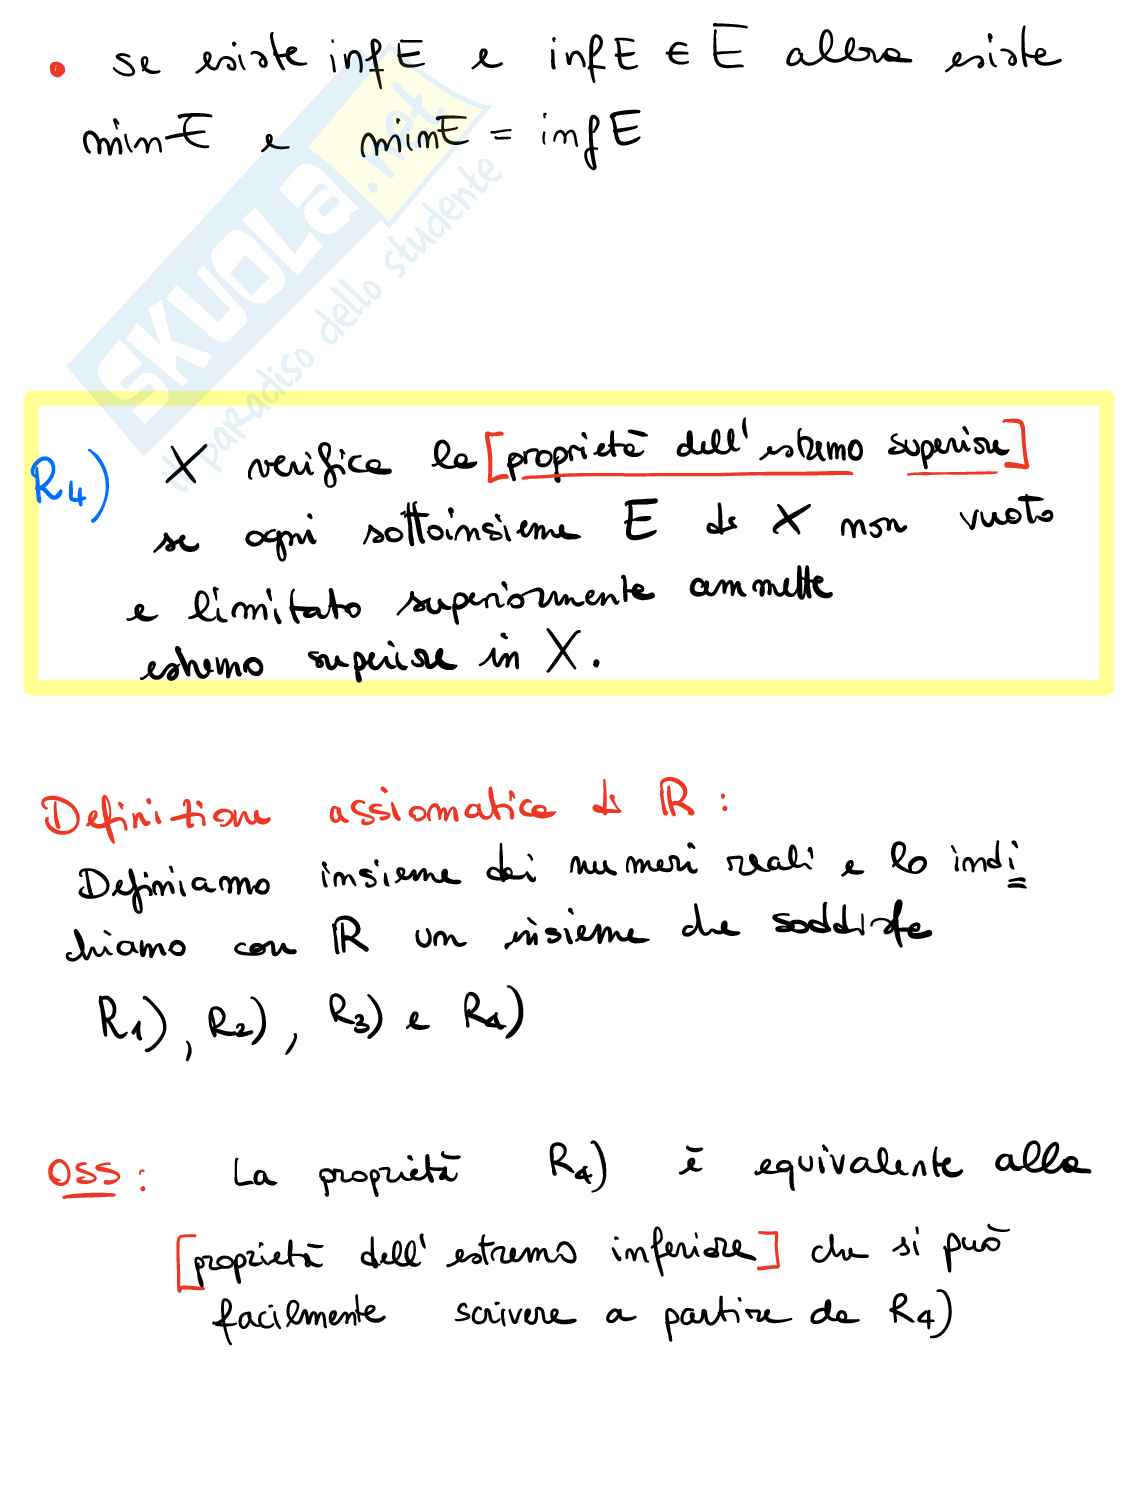 • se esiste inf E e inf E ∈ E allora esiste
min E e min E = inf E
SKUOLA.net
il paradiso dello studente
R4) X verifica la [proprietà dell'estremo superiore]
se ogni sottoinsieme E di X non vuoto
e limitato superiormente ammette
estremo superiore in X.
Definizione assiomatica di ℝ:
Definiamo insieme dei numeri reali e lo indi
chiamo con ℝ un insieme che soddisfa
R1), R2), R3) e R4)
OSS: La proprietà R4) è equivalente alla
[proprietà dell'estremo inferiore] che si può
facilmente scrivere a partire da R4)